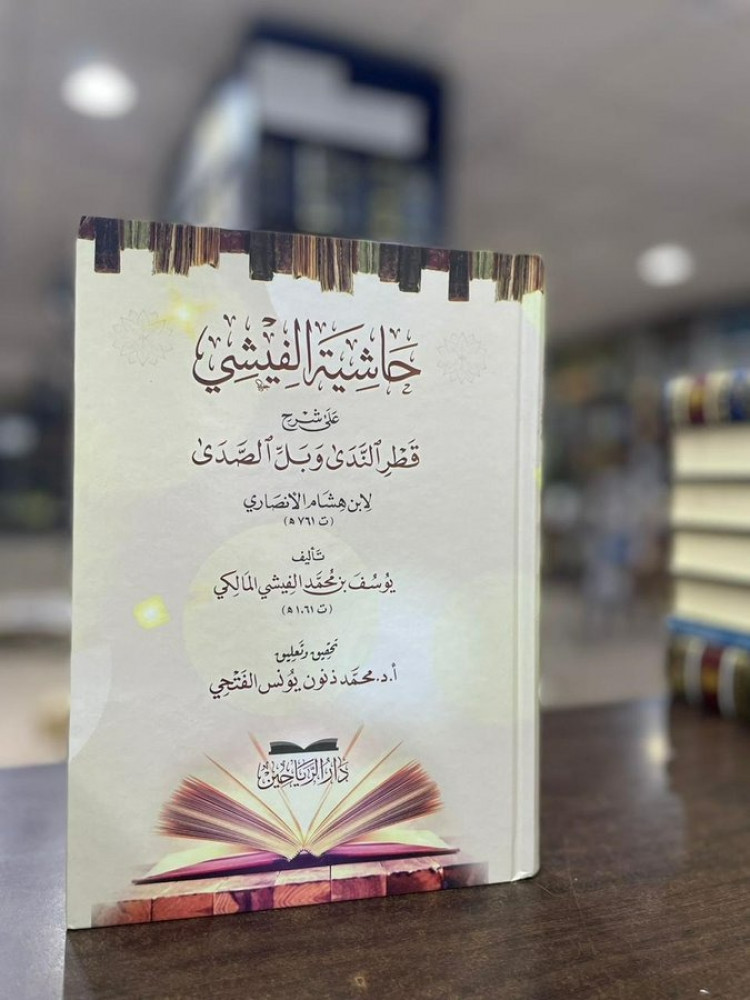 حَاشِيَة الفِيْشِي
عَلَى شَرْح
قَطْرِ النَّدَى وَبَلِّ الصَّدَى
لِابن هِشَام الأَنْصَارِي
(ت ٧٦١ ه)
تَأليف
يُوسُفَ بن مُحمَّد الفِيشي المَالِكي
(ت ١٠٦١ ه)
تحقِيق وتَعليق
أ.د. محمَّد ذنون يُونس الفَتْحِي
دَار الرَّيَاحِين